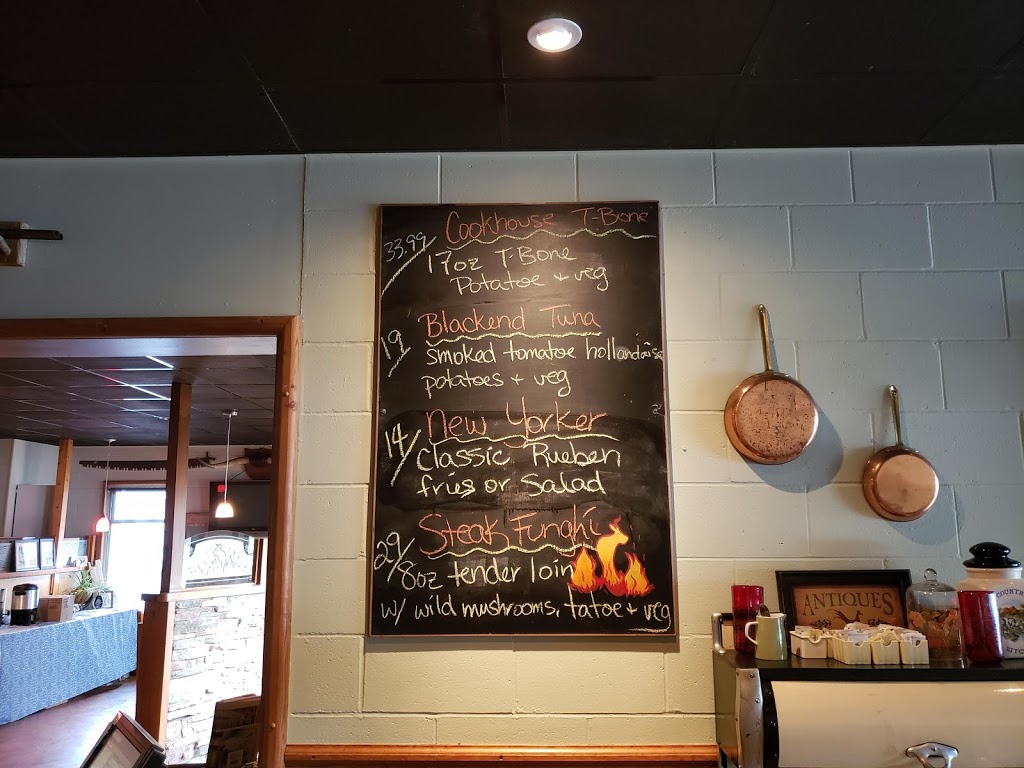 Cookhouse T-Bone
33.99/
17oz T-Bone
Potatoe + veg
Blackend Tuna
19/
smoked tomatoe hollandaise
potatoes + veg
New Yorker
14/
classic Rueben
fries or Salad
Steak Funghi
29/
8oz tender loin
w/ wild mushrooms, tatoe + veg
ANTIQUES
COUNTRY